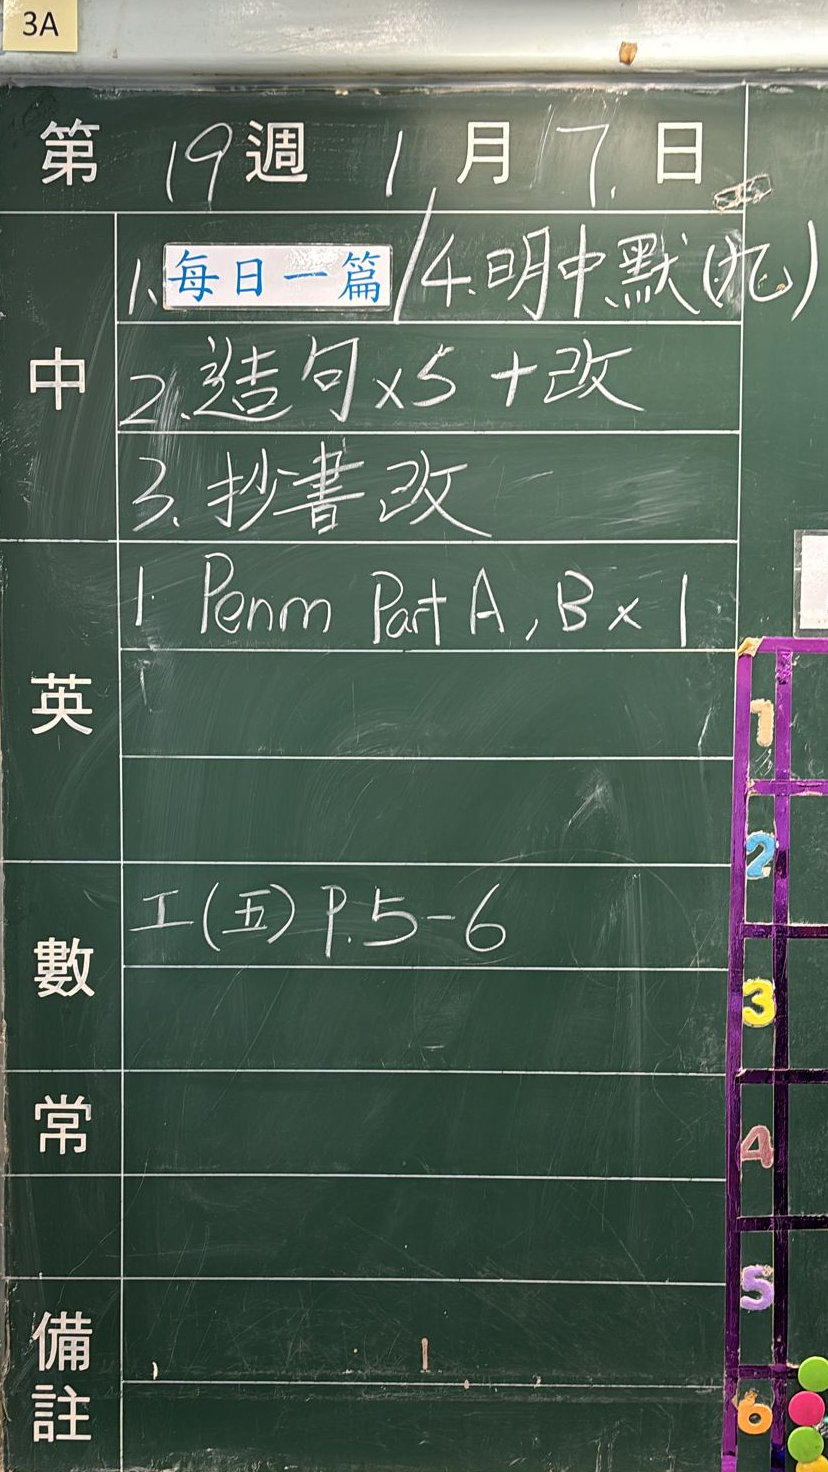 3A
第19週 1月17日
中
1. 每日一篇 / 4. 明中默(九)
2. 造句x5 + 改
3. 抄書改
英
1. Penm Part A, B x 1
數
工(五) P.5-6
常
備註
1
2
3
4
5
6